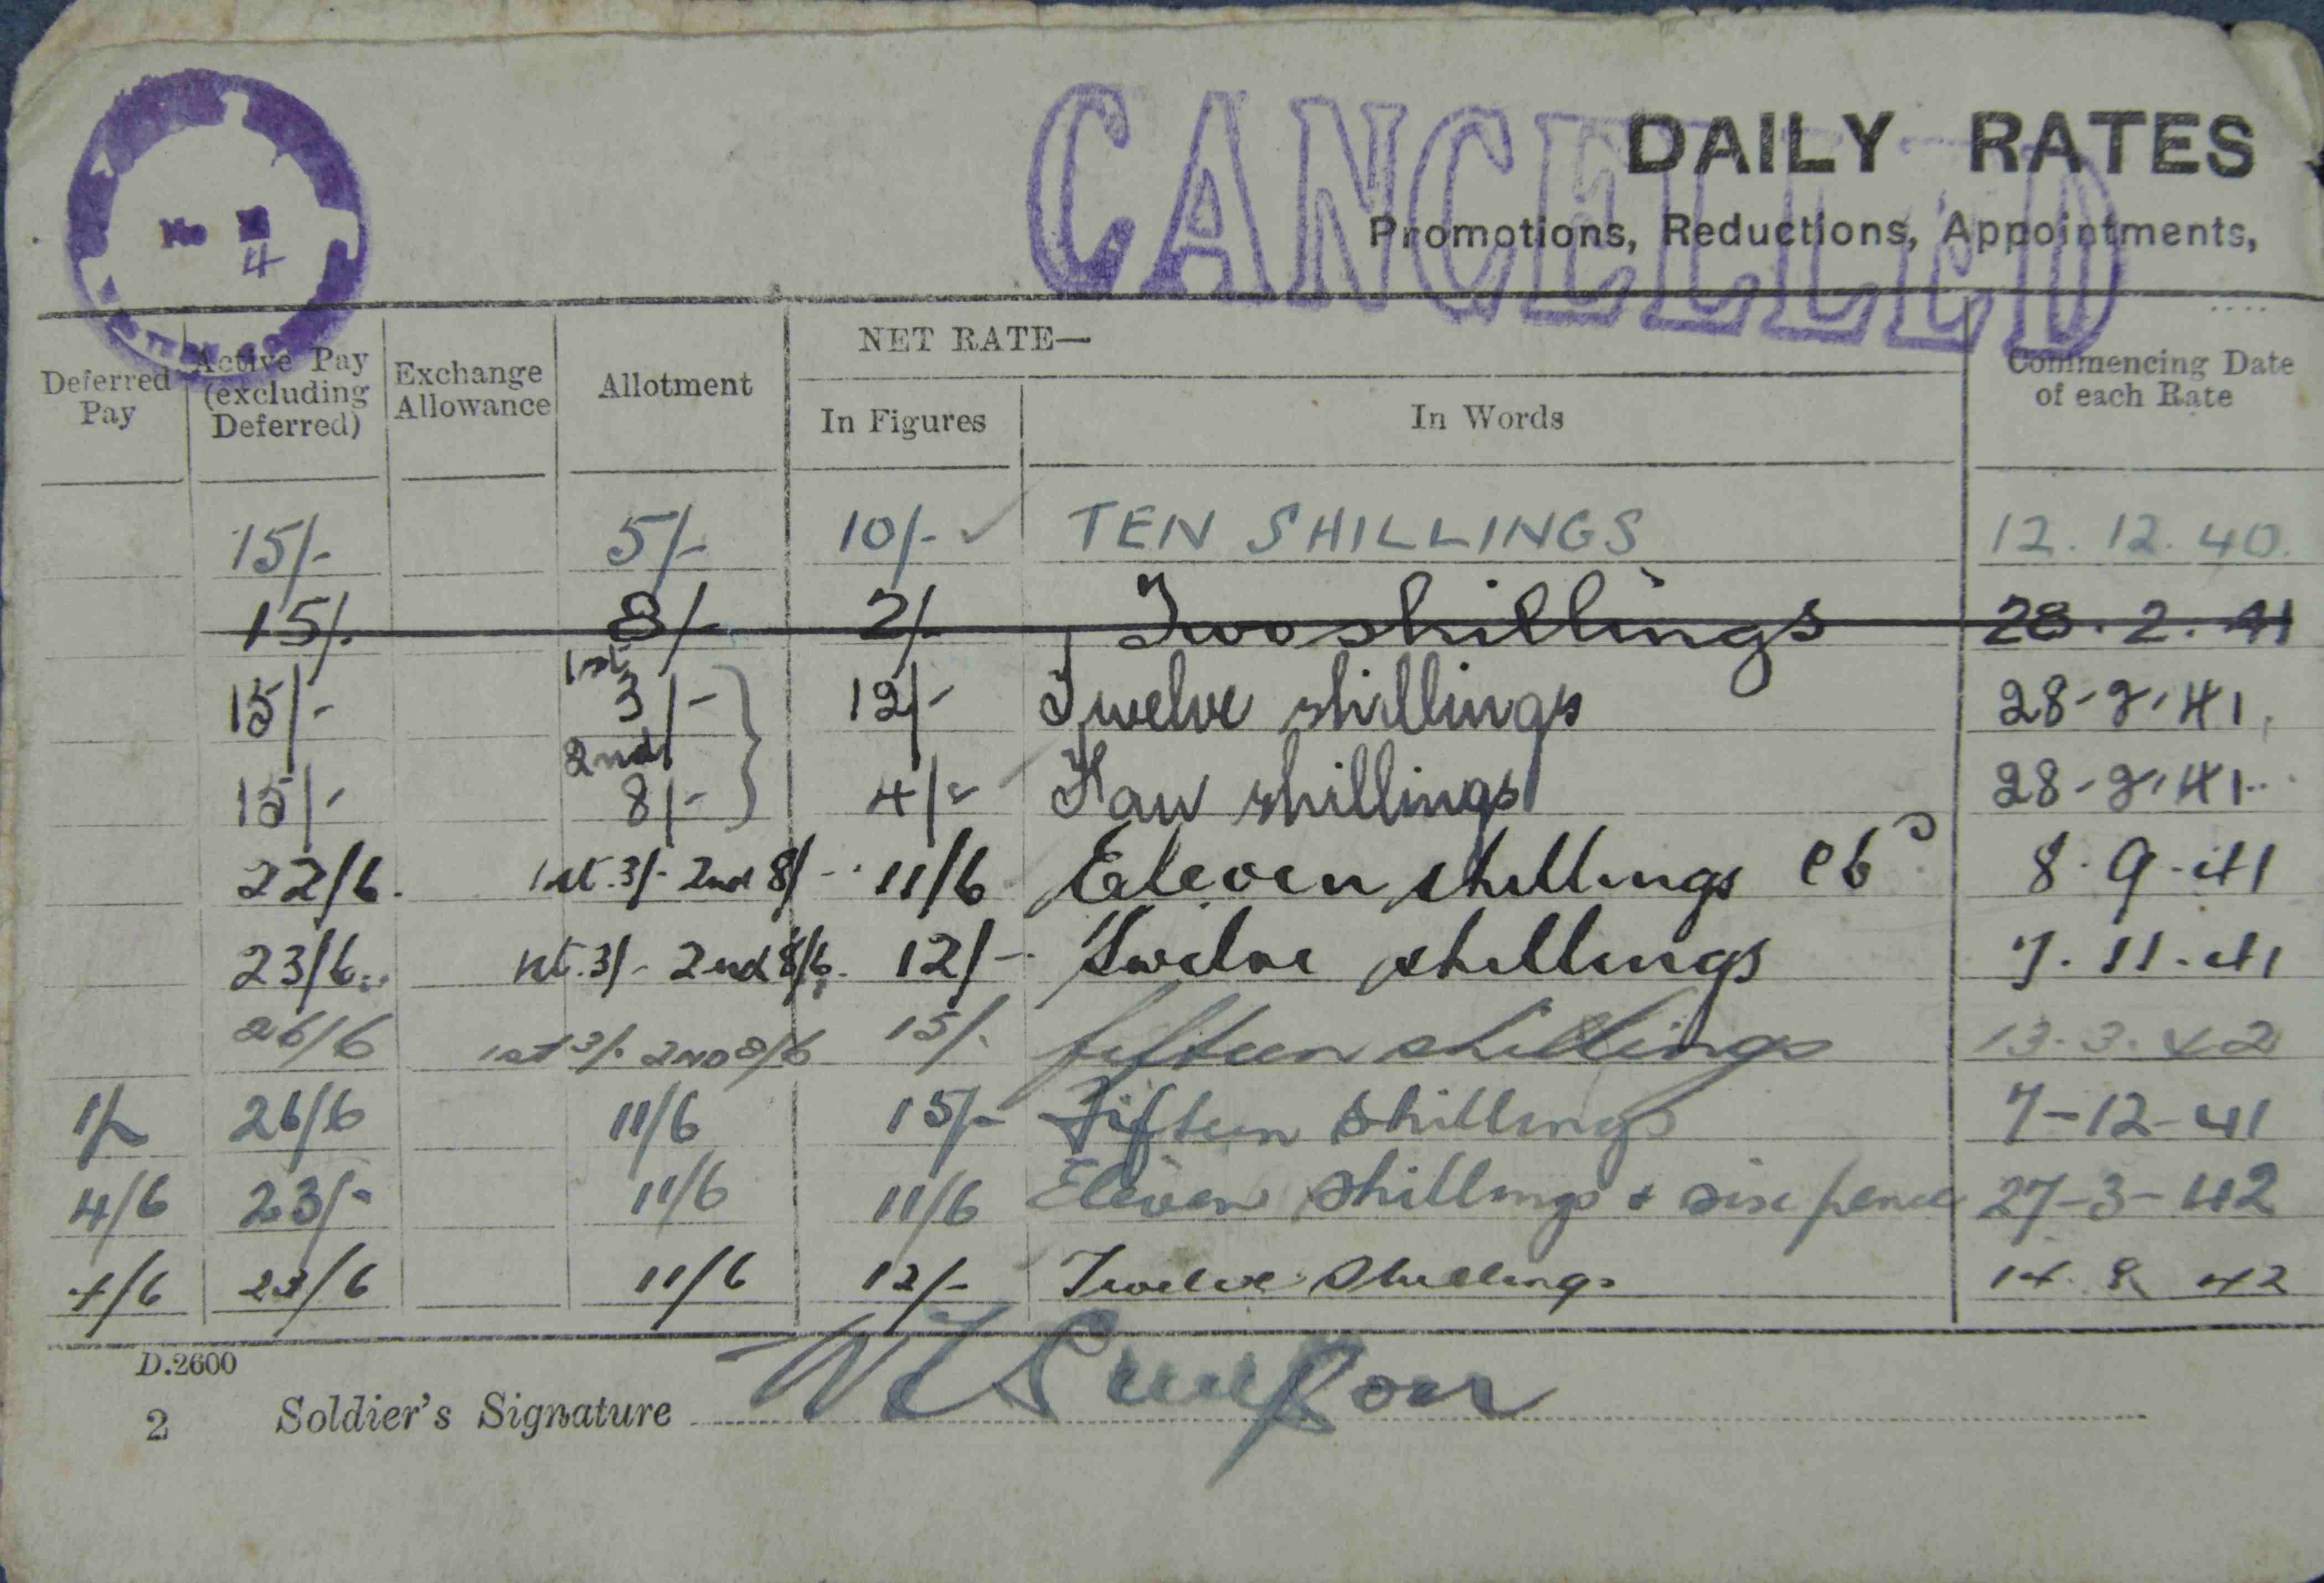 CANCELLED
DAILY RATES
Promotions, Reductions, Appointments,
No 4
Deferred Pay
Active Pay (excluding Deferred)
Exchange Allowance
Allotment
NET RATE—
In Figures
In Words
Commencing Date of each Rate
15/- 5/- 10/- TEN SHILLINGS 12.12.40.
15/. 8/- 2/- Two shillings 28.2.41
15/- 1st 3/- 12/- Twelve shillings 28-2-41
15/- 2nd 8/- 4/- Four shillings 28-2-41
22/6. 1st.3/- 2nd 8/- 11/6 Eleven shillings 8.9.41
23/6 1st.3/- 2nd 8/6. 12/- Twelve shillings 7.11.41
26/6 1st 3/- 2ND 8/6 15/- fifteen shillings 13.3.42
1/- 26/6 11/6 15/- Fifteen Shillings 7-12-41
4/6 23/- 11/6 11/6 Eleven Shillings + six pence 27-3-42
4/6 23/6 11/6 12/- Twelve Shillings 14.8.42
D.2600
2 Soldier's Signature